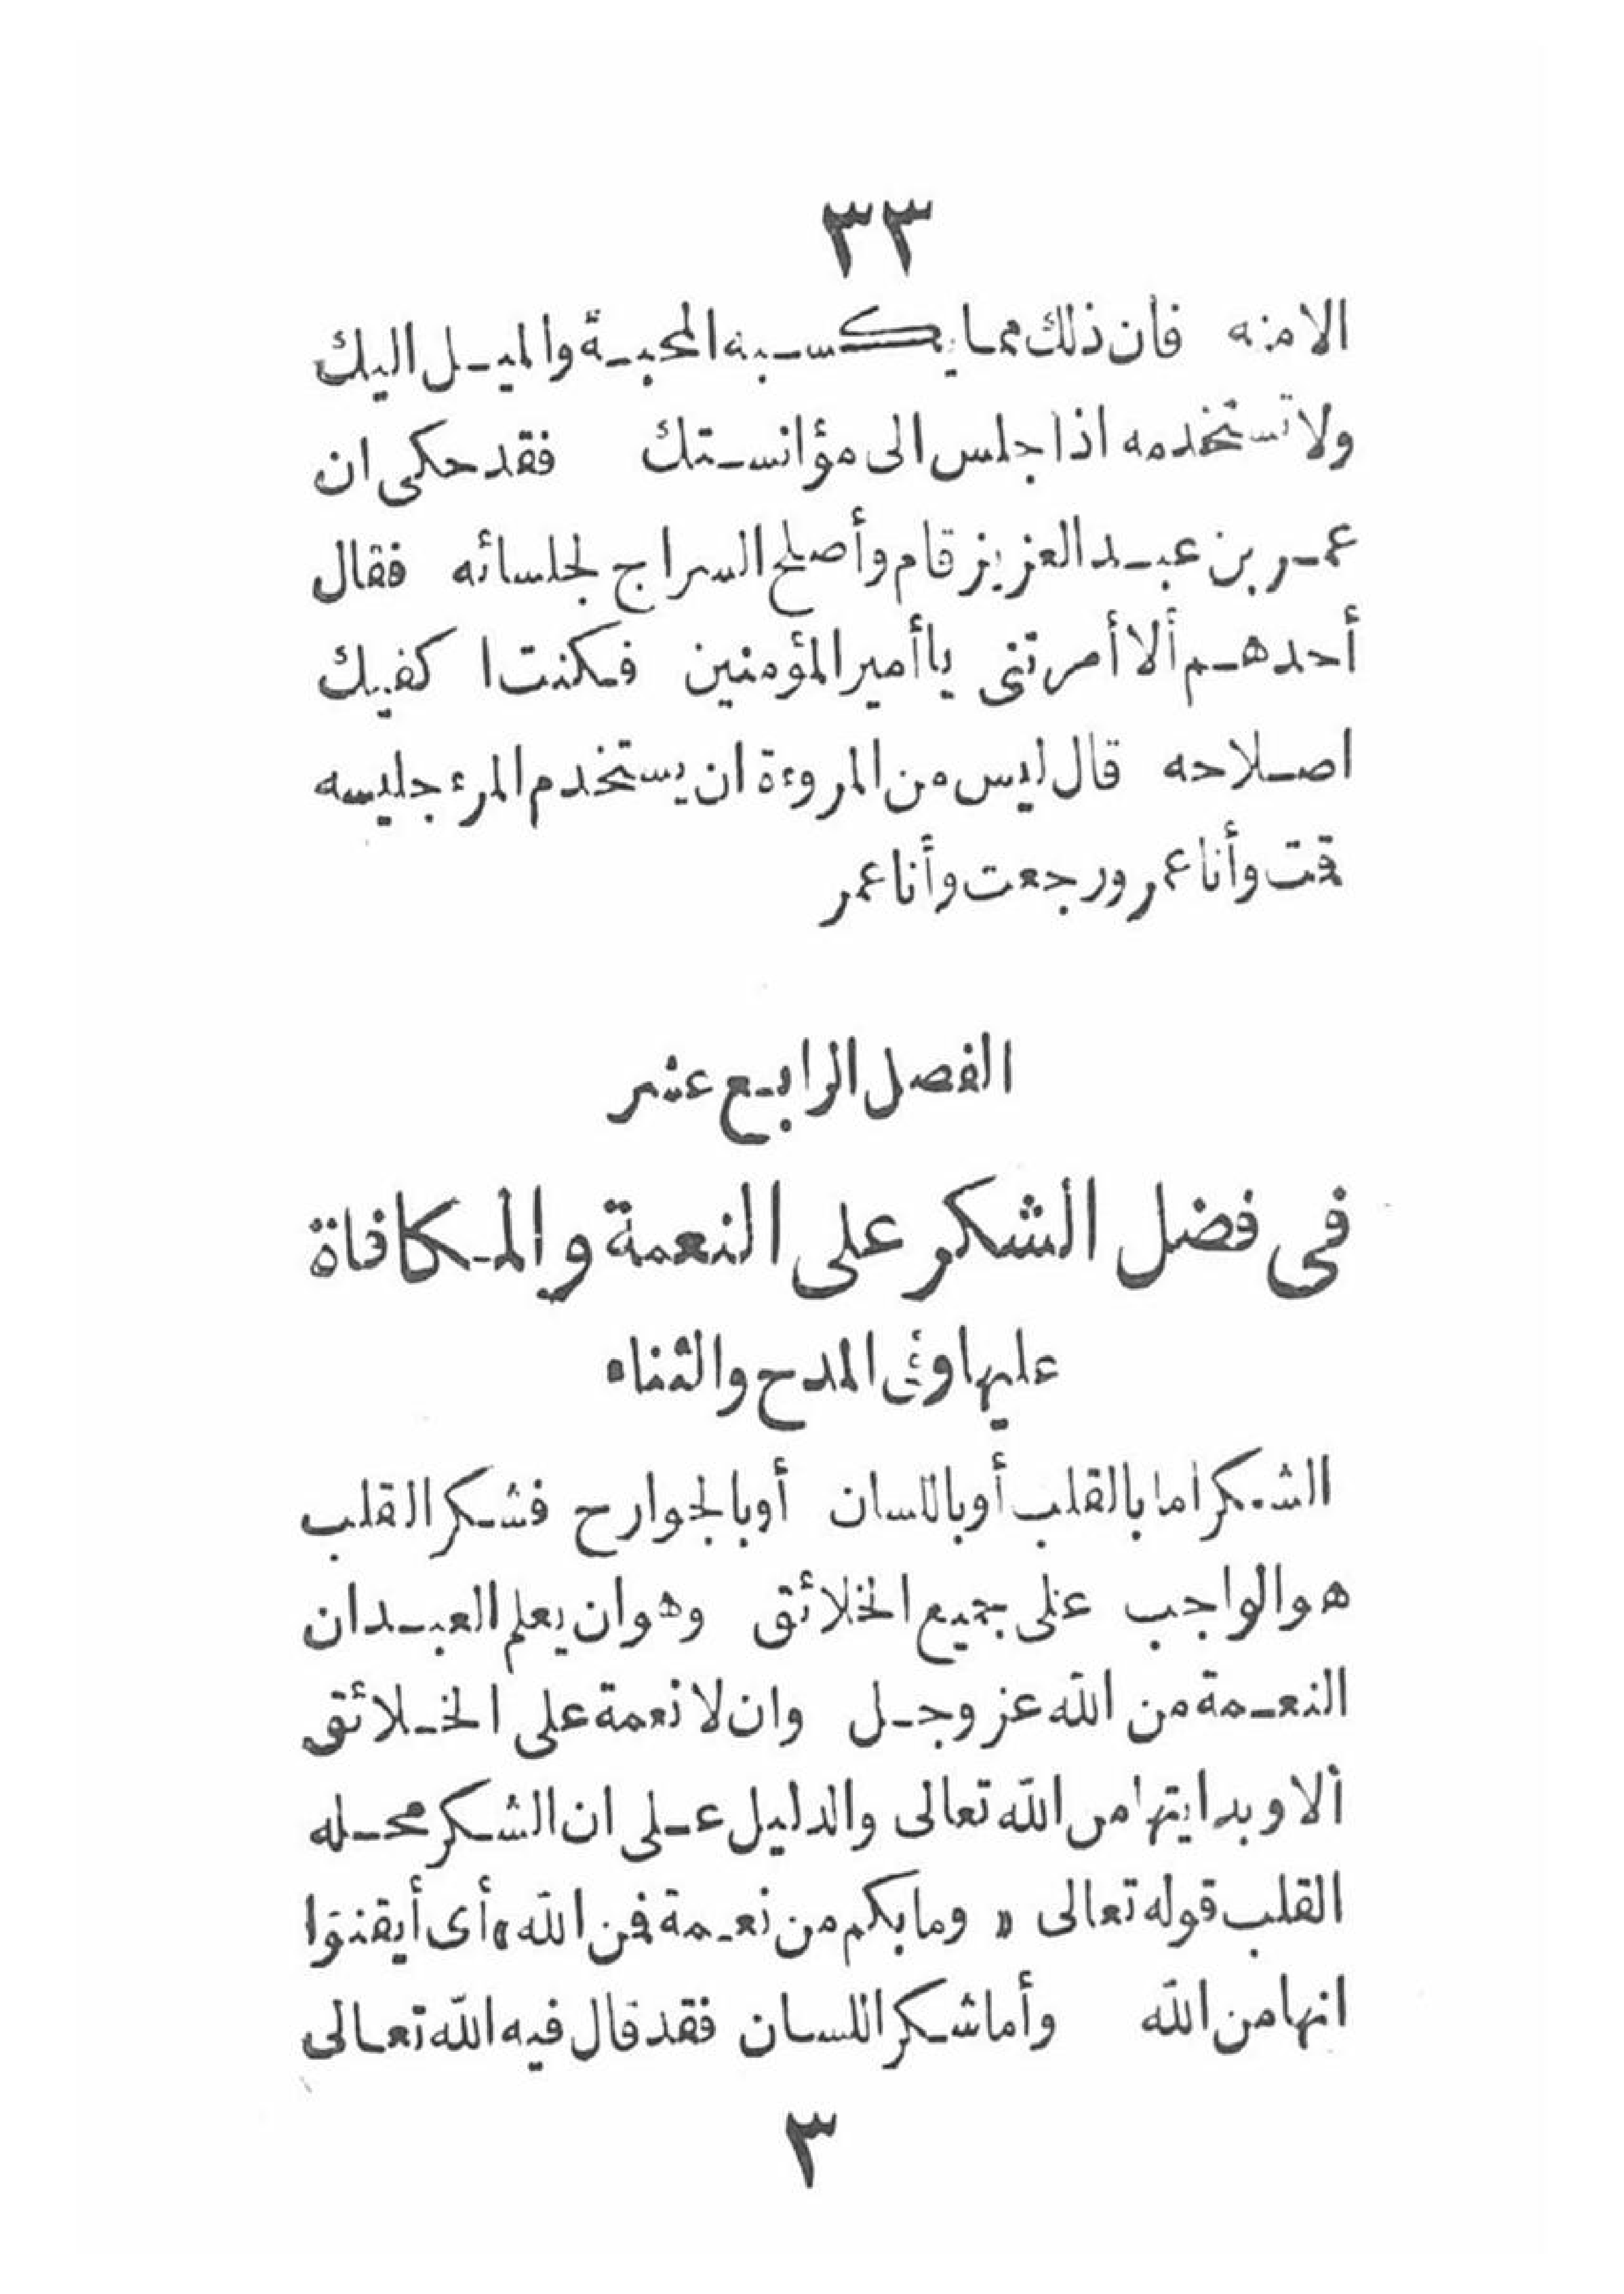 ٣٣
الامنه فان ذلك مما يكسبه المحبة والميل اليك
ولا تستخدمه اذا جلس الى مؤانستك فقد حكى ان
عمر بن عبد العزيز قام وأصلح السراج لجلسائه فقال
أحدهم ألا أمرتنى يا أمير المؤمنين فكنت ا كفيك
اصلاحه قال ليس من المروءة ان يستخدم المرء جليسه
قمت وأنا عمر ورجعت وأنا عمر
الفصل الرابع عشر
فى فضل الشكر على النعمة والمكافاة
عليها وفى المدح والثناء
الشكر اما بالقلب أو باللسان أو بالجوارح فشكر القلب
هو الواجب على جميع الخلائق وهو ان يعلم العبد ان
النعمة من الله عز وجل وان لا نعمة على الخلائق
ألا وبدايتها من الله تعالى والدليل على ان الشكر محله
القلب قوله تعالى « وما بكم من نعمة فمن الله » أى أيقنوا
انها من الله وأما شكر اللسان فقد قال فيه الله تعالى
٣